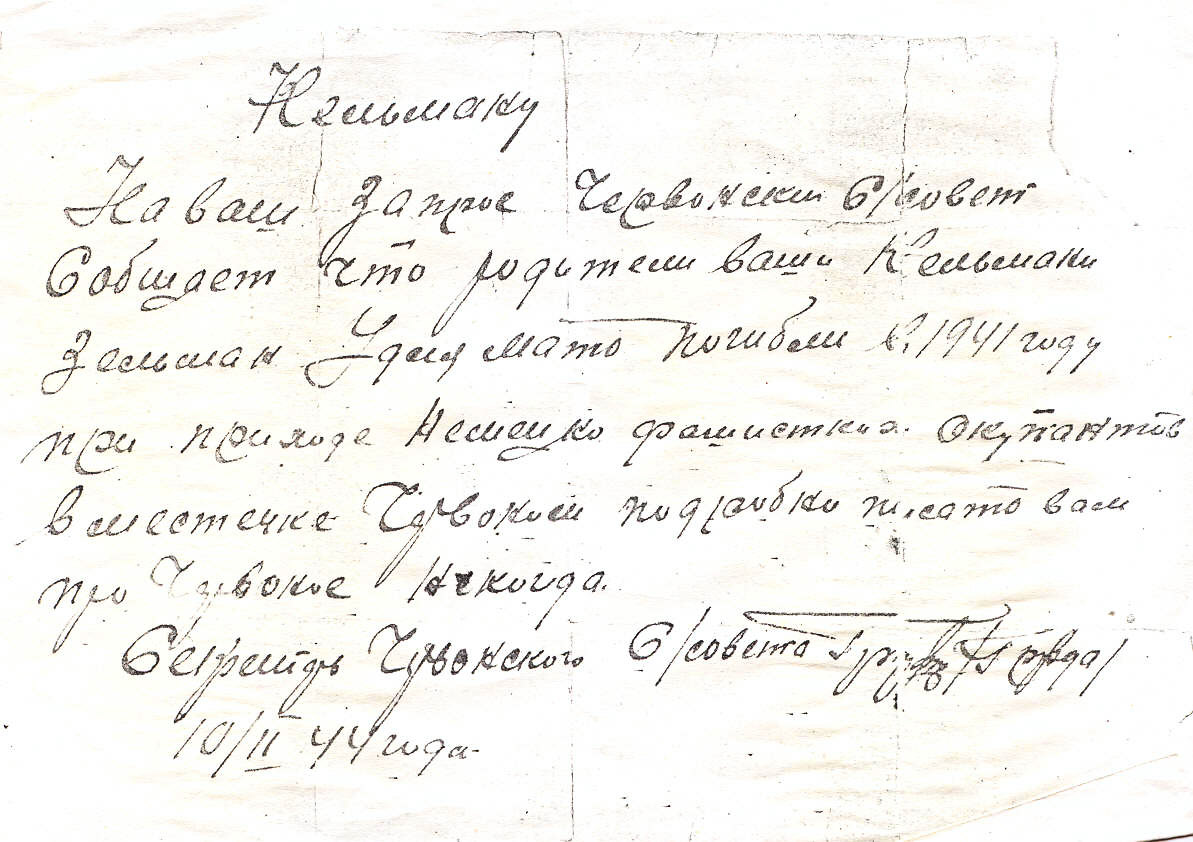 Кельману
На ваш запрос Червонский С/совет
Собщает что родители ваши Кельманы
Зельман Удия мать погибли в 1941 году
при приходе Немецко фашистких окупантов
в местечке Червоном подробно писать вам
про Червоное некогда.
Секретарь Червонского С/совета
10/II 44 года